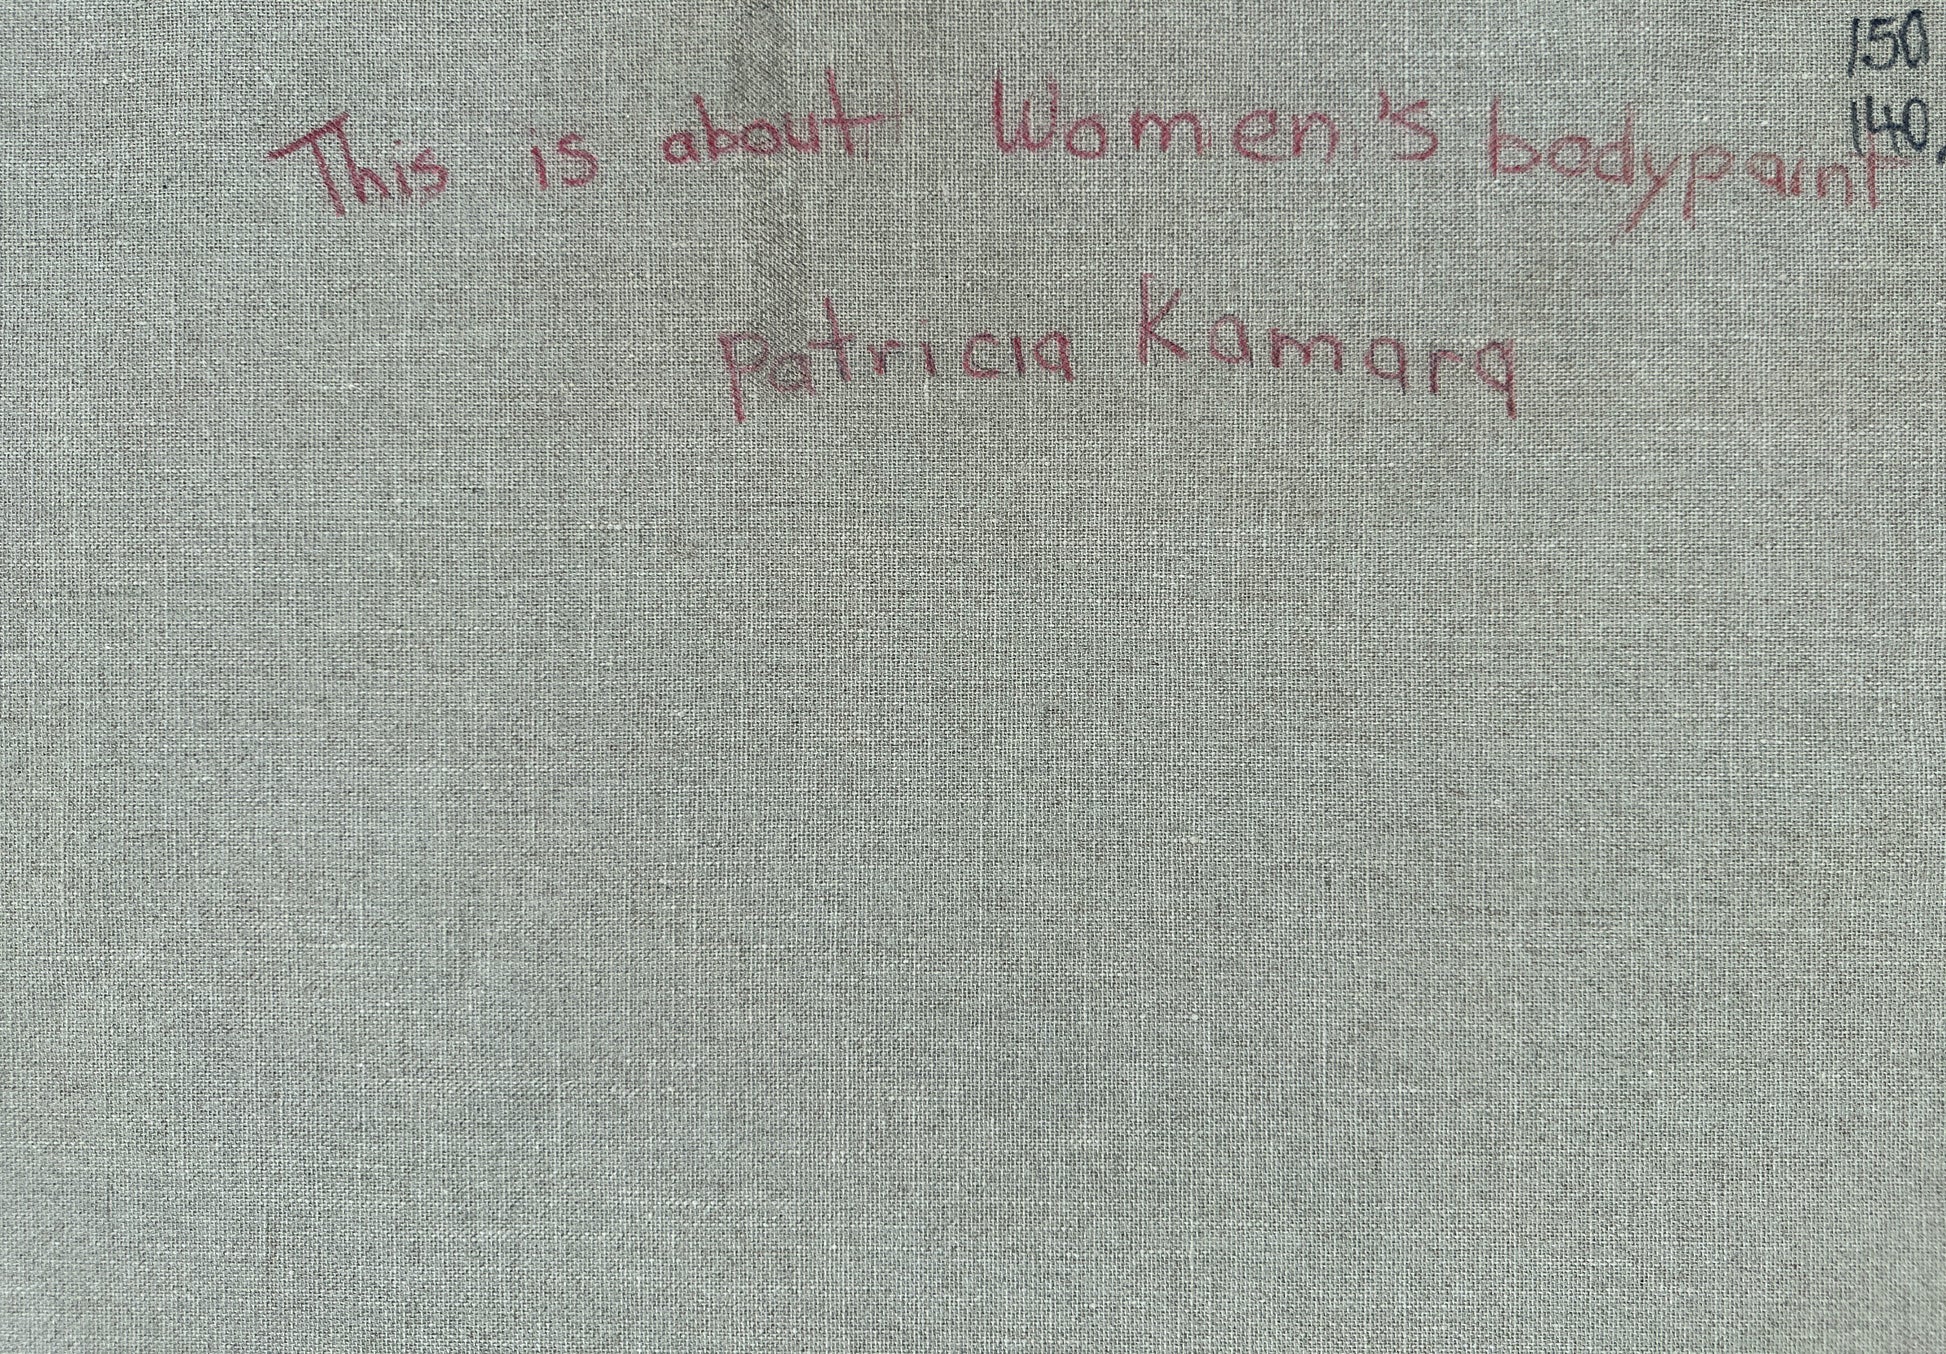 150
140
This is about Women's bodypaint
Patricia Kamara